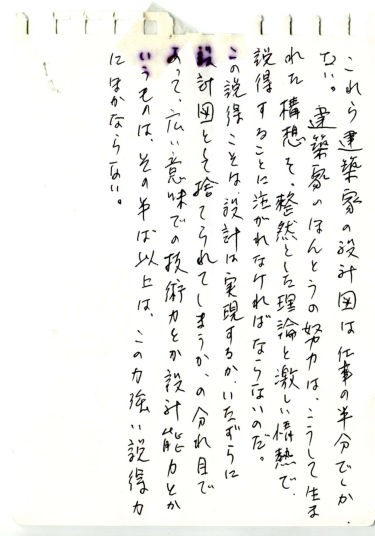 これら建築家の設計図は仕事の半分でしか
ない。建築家のほんとうの努力は、こうして生ま
れた構想を、整然とした理論と激しい情熱で、
説得することに注がれなければならないのだ。
この説得こそは、設計は実現するか、いたずらに
設計図として捨てられてしまうか、の分れ目で
あって、広い意味での技術力とか設計能力とか
いうものは、その半ば以上は、この力強い説得力
にほかならない。